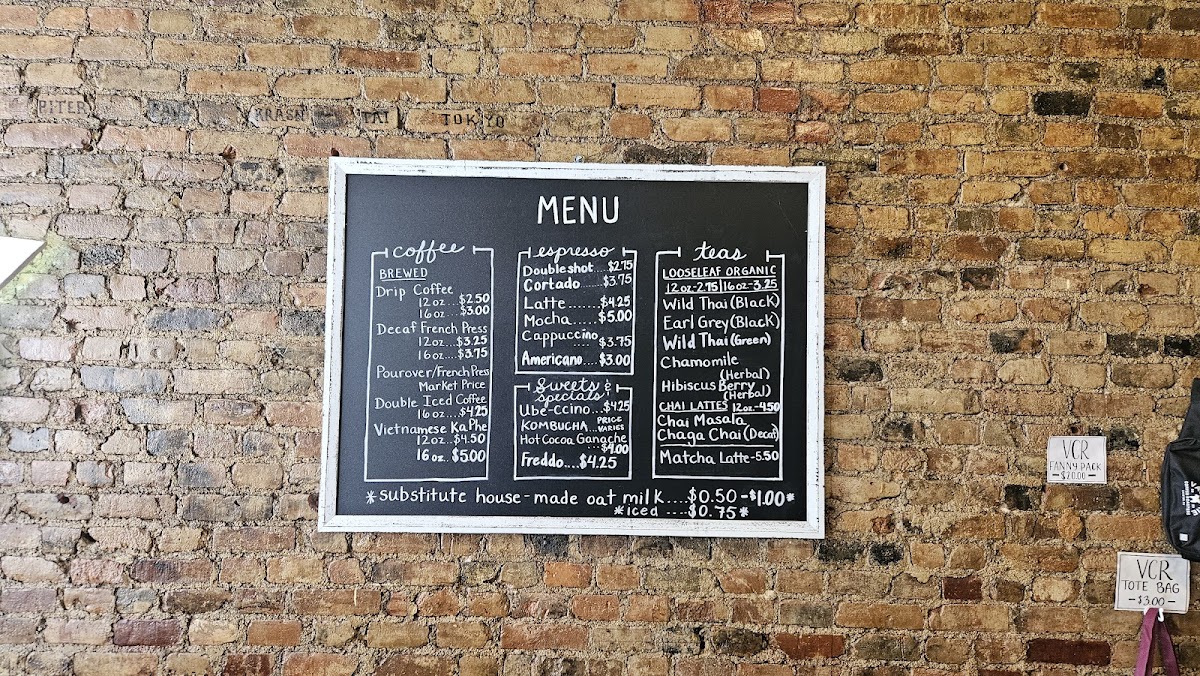 PITER
KRASN
TAI
TOKYO
MENU
coffee
BREWED
Drip Coffee
12oz...$2.50
16oz...$3.00
Decaf French Press
12oz...$3.25
16oz...$3.75
Pourover/French Press
Market Price
Double Iced Coffee
16oz...$4.25
Vietnamese Ka Phe
12oz..$4.50
16oz..$5.00
espresso
Double shot....$2.75
Cortado.......$3.75
Latte.......$4.25
Mocha.....$5.00
Cappuccino
....$3.75
Americano...$3.00
Sweets &
Specials
Ube-ccino...$4.25
KOMBUCHA...PRICE VARIES
Hot Cocoa Ganache
...$4.00
Freddo....$4.25
teas
LOOSELEAF ORGANIC
12oz-2.75|16oz-3.25
Wild Thai (Black)
Earl Grey (Black)
Wild Thai (Green)
Chamomile
(Herbal)
Hibiscus Berry
(Herbal)
CHAI LATTES 12oz-4.50
Chai Masala
Chaga Chai (Decaf)
Matcha Latte-5.50
*substitute house-made oat milk....$0.50-$1.00*
*iced ....$0.75*
VCR
FANNY PACK
-$20.00-
VCR
TOTE BAG
-$3.00-